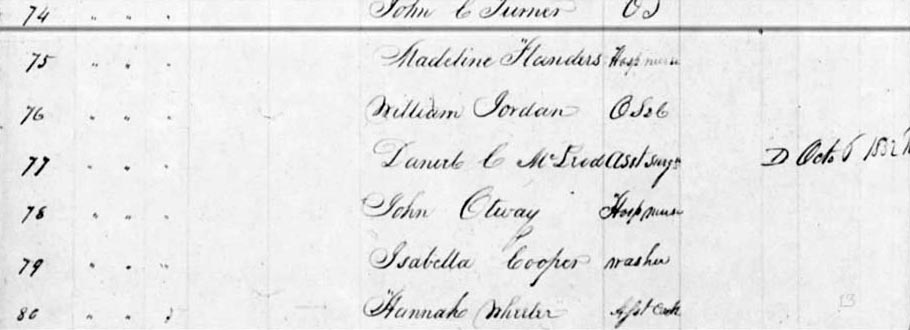 74 " " " John C Turner OS
75 " " " Madeline Flanders Hosp nurse
76 " " " William Jordan
77 " " " Daniel C McLeod Asst Surgn D Oct 6
78 " " " John Otway Hosp nurse
79 " " " Isabella Cooper washer
80 " " " Hannah Wheeler Asst Cook
13